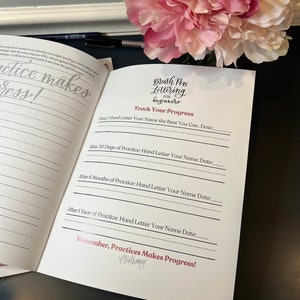 actice makes
ress!
Brush Pen
Lettering
FOR
beginners
Track Your Progress
Day 1 Hand Letter Your Name the Best You Can. Date:
After 30 Days of Practice: Hand Letter Your Name Date:
After 6 Months of Practice: Hand Letter Your Name Date:
After 1 Year of Practice: Hand Letter Your Name Date:
Remember, Practices Makes Progress!